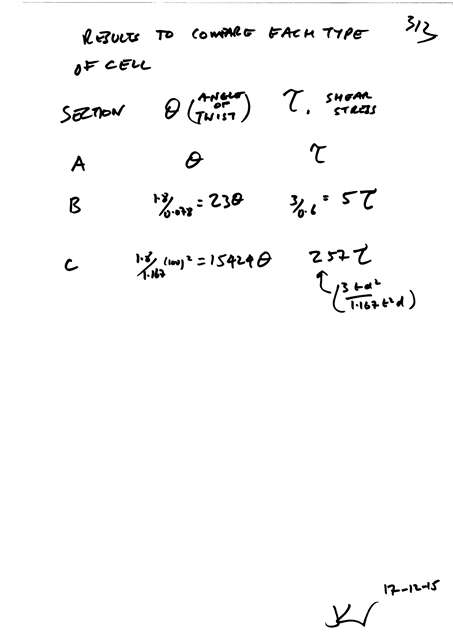 3/3
RESULTS TO COMPARE EACH TYPE
OF CELL
SECTION θ (ANGLE OF TWIST) τ. SHEAR STRESS
A θ τ
B 1.8/0.078 = 23θ 3/0.6 = 5τ
C 1.8/1.167 (100)² = 15424θ 257τ
(3td²/1.167t²d)
17-12-15